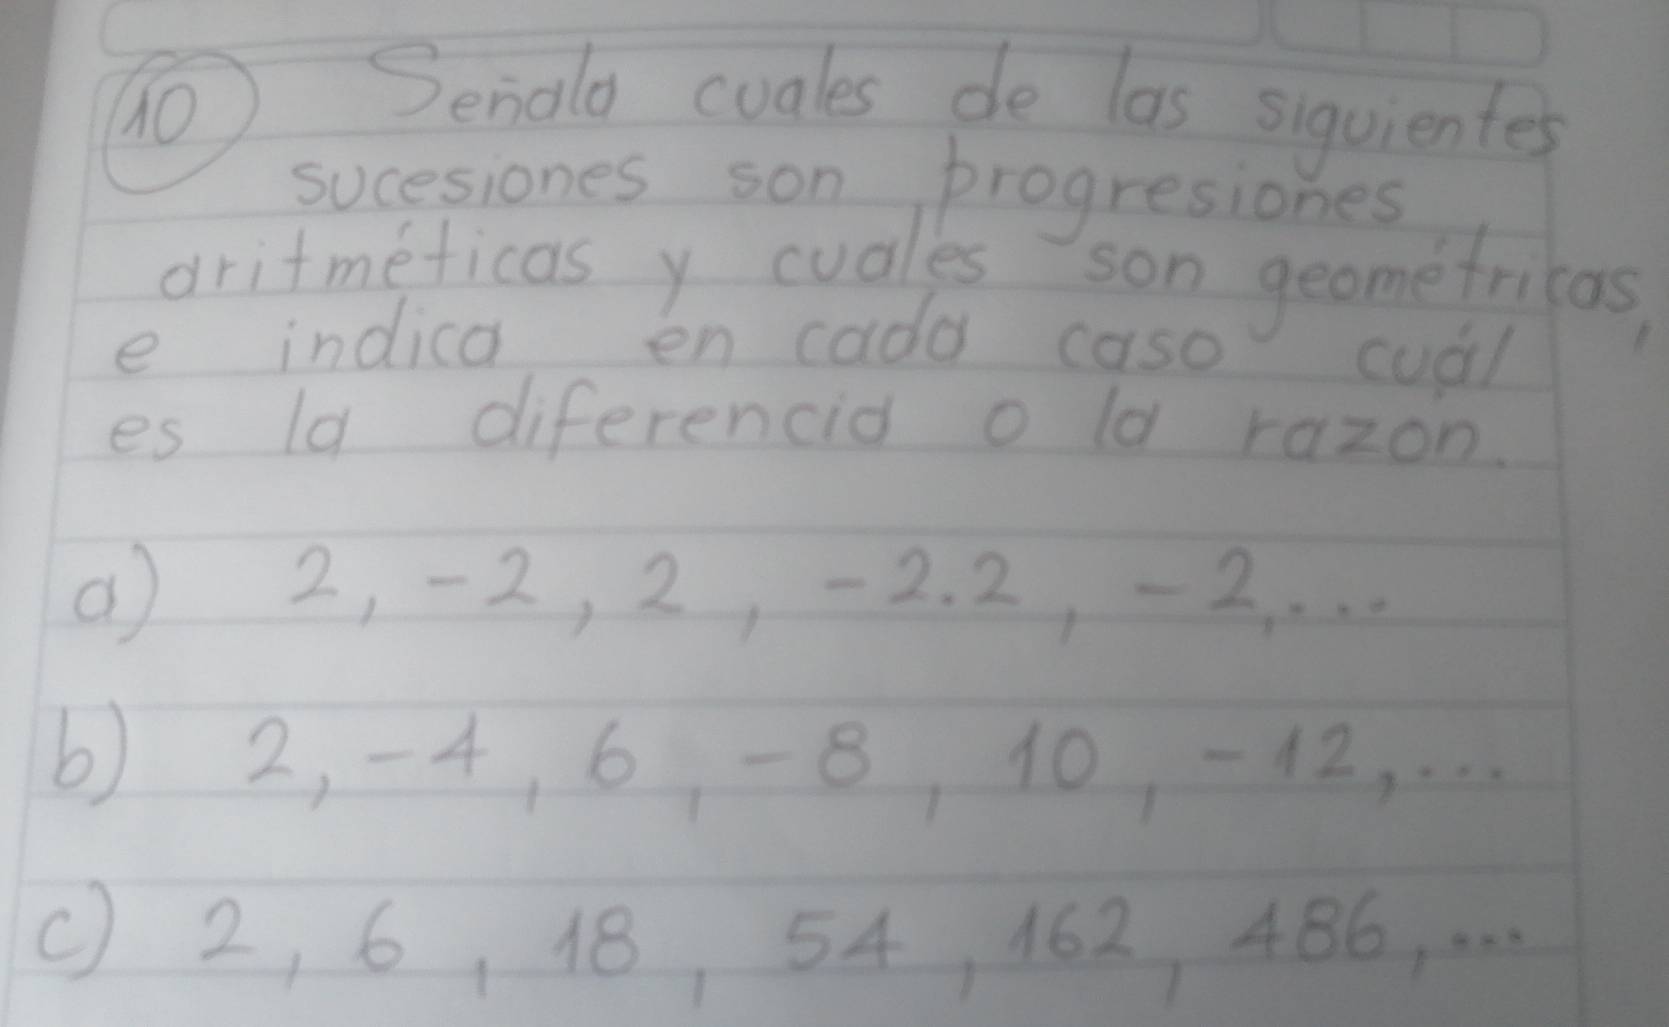 10 Señala cuales de las siguientes
sucesiones son progresiones
aritméticas y cuales son geométricas,
e indica en cada caso cuál
es la diferencia o la razon.
a) 2, -2, 2, -2.2, -2,...
b) 2, -4, 6, -8, 10, -12,...
c) 2, 6, 18, 54, 162, 486,...